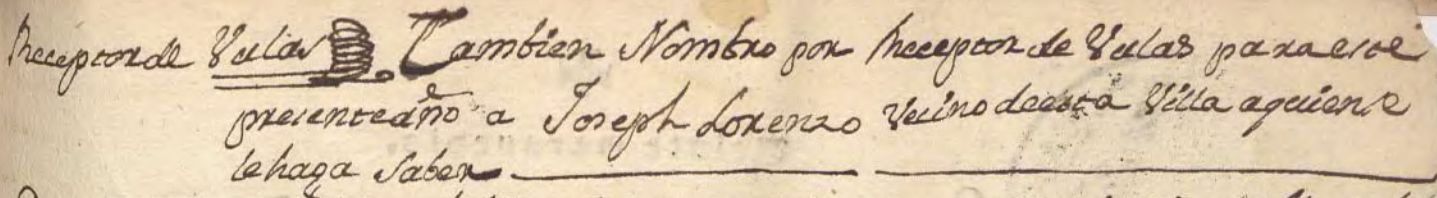 Receptor de Vulas Tambien Nombro por Receptor de Vulas para este
presente año a Joseph Lorenzo Vecino de esta Villa a quien se
le haga Saber